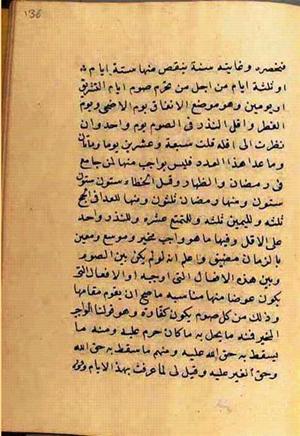 136
فنحصره وغايته سنة ينقص منها ستة ايام
او ثلثة ايام من اجل من حرم صوم ايام التشريق
او يومين وهو موضع الاتفاق يوم الاضحى ويوم
الفطر واقل النذر فى الصوم يوم واحد وان
نظرت الى اقله قلت سبعة وعشرين يوما وماتان
وما عدا هذا العدد فليس بواجب منها لمن جامع
فى رمضان والظهار وقتل الخطاء ستون ستون
ستون ومنها رمضان ثلثون ومنها للعدا فى الحج
ثلثه ولليمين ثلثه وللتمتع عشرة وللنذر واحد
على الاقل وفيها ما هو واجب مخير وموسع ومعين
بالزمان مضيق واعلم انه لو لم يكن بين الصوم
وبين هذه الافعال التى اوجبه او الافعال التى
يكون عوضا منها مناسبة ما صح ان يقوم مقامها
وذلك من كل صوم يكون كفارة وهو قولنا الواجب
المخير فمنه ما يحل به ما كان حرم عليه ومنه ما
يسقط به حق الله عليه ومنهم ما سقط به حق الله
وحق الغير عليه وقيل لى لما عرفت بهذا الايام